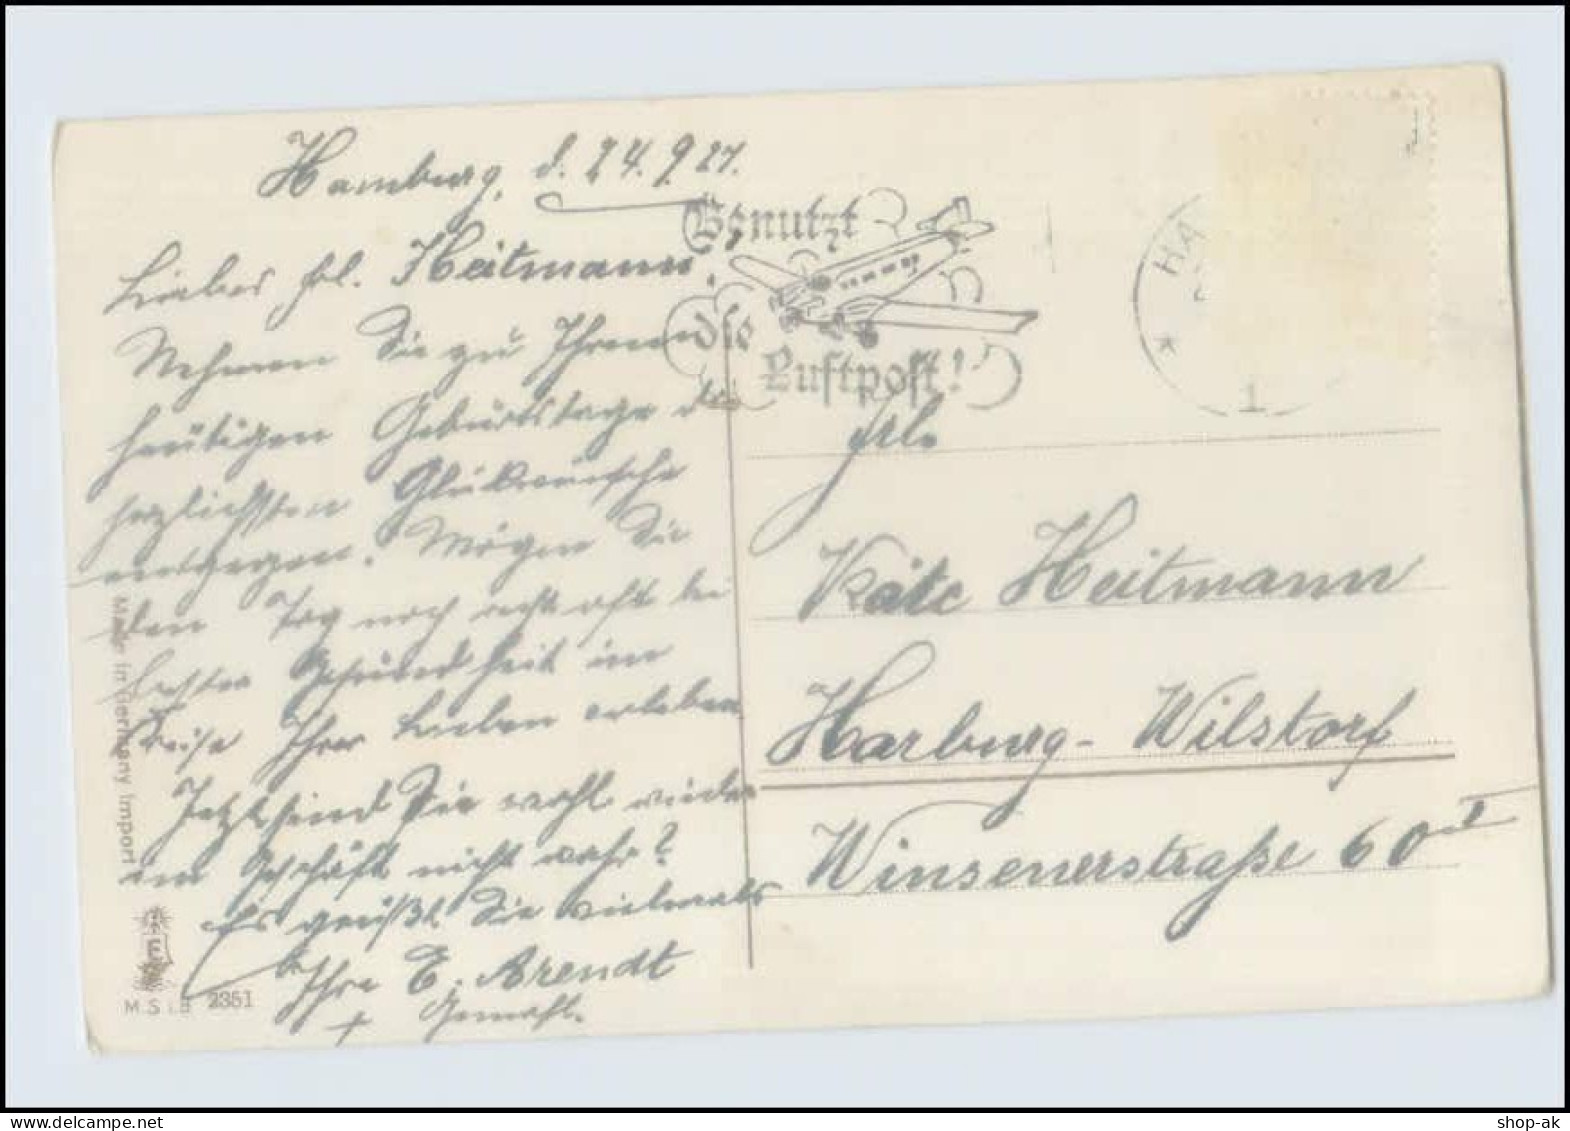 Hamburg, d. 24.9.27.
Benutzt
die
Luftpost!
HA
1
Liebes Frl. Heitmann,
Nehmen Sie zu Ihrem
heutigen Geburtstage die
herzlichsten Glückwünsche
entgegen. Mögen Sie
den Tag noch recht oft bei
bester Gesundheit im
Kreise Ihrer Lieben erleben
Jetzt sind Sie wohl wieder
im Geschäft nicht wahr?
Es grüßt Sie vielmals
Ihre E. Arendt
+ Gemahl.
Frl.
Käte Heitmann
Harburg-Wilstorf
Winsenerstraße 60 II
Made in Germany Import
M.S.i.B 2351
shop-ak